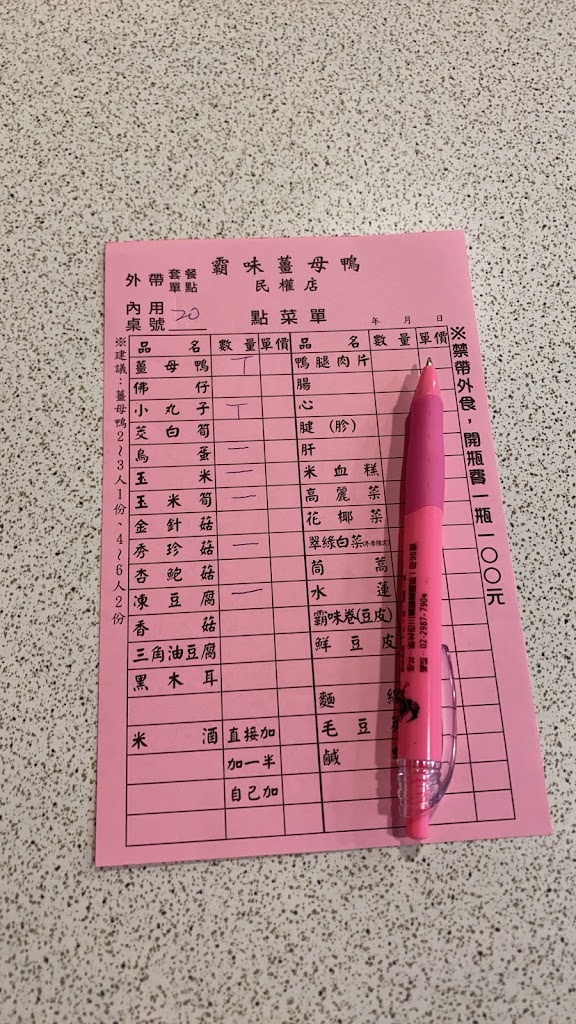 霸味薑母鴨
民權店
外帶 套餐 單點
內用
桌號 20
點菜單
年 月 日
※建議:薑母鴨2~3人1份、4~6人2份
品名 數量 單價 品名 數量 單價
薑母鴨 丅 鴨腿肉片
佛仔 腸
小丸子 丅 心
茭白筍 腱(胗)
鳥蛋 一 肝
玉米 一 米血糕
玉米筍 一 高麗菜
金針菇 花椰菜
秀珍菇 一 翠綠白菜
杏鮑菇 茼蒿
凍豆腐 一 水蓮
香菇 霸味卷(豆皮)
三角油豆腐 鮮豆皮
黑木耳
麵
米酒 直接加 毛豆
加一半 鹹
自己加
※禁帶外食,開瓶費一瓶一〇〇元
02-2987-7904